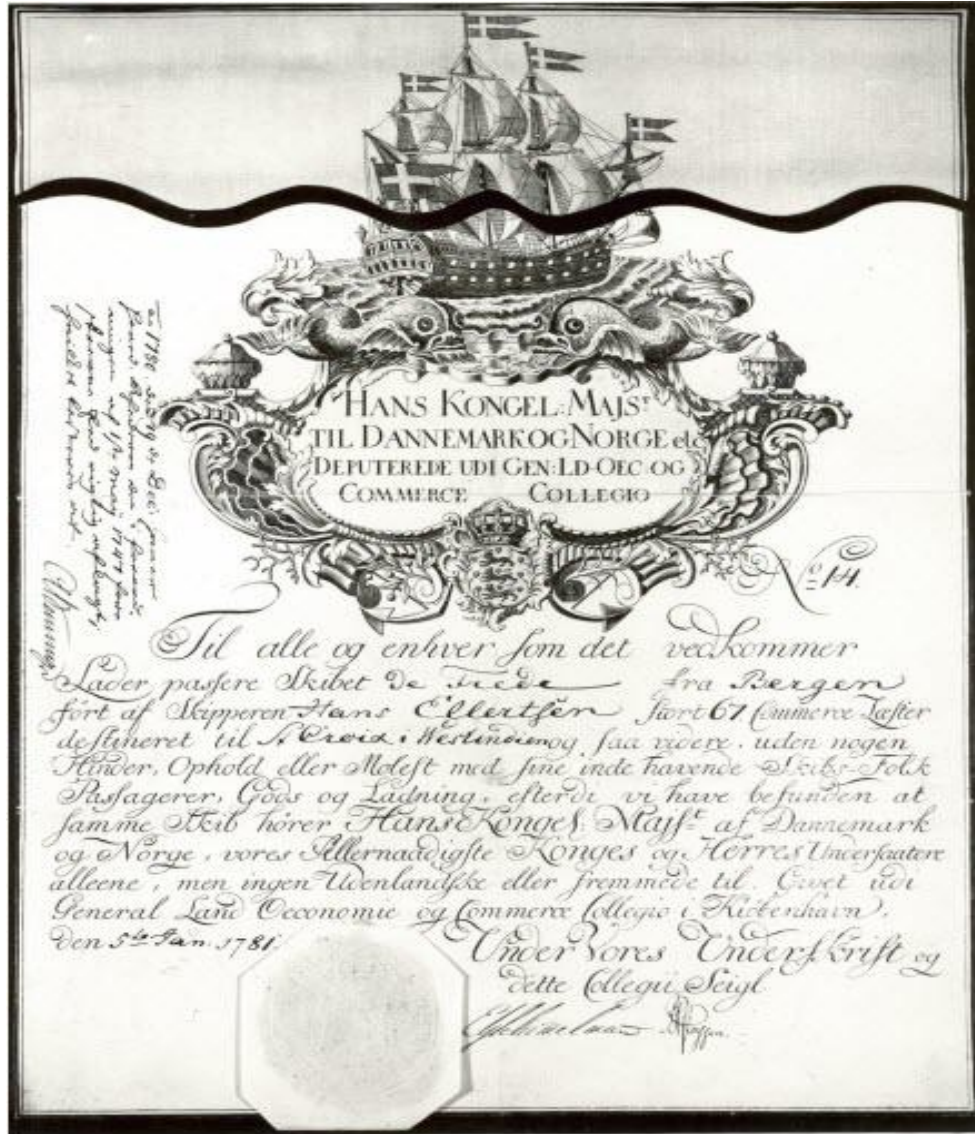 HANS KONGEL: MAJSᵗ
TIL DANNEMARK OG NORGE etc
DEPUTEREDE UDI GEN: LD-OEC: OG
COMMERCE COLLEGIO
Nº 14.
Til alle og enhver som det vedkommer
Lader passere Skibet De Frede fra Bergen
ført af Skipperen Hans Ellertsen stort 67 Commerce Læster
destineret til St Croix i Westindien og saa videre, uden nogen
Hinder, Ophold eller Molest med sine inde havende Skibs-Folk
Passagerer, Gods og Ladning, efterdi vi have befunden at
samme Skib hörer Hans Konges Majsᵗ af Dannemark
og Norge, vores Allernaadigste Konges og Herres Undersaatere
alleene, men ingen Udenlandske eller fremmede til. Givet udi
General Land Oeconomie og Commerce Collegio i Kiöbenhavn,
den 5te Jan. 1781.
Under Vores Underskrift og
dette Collegii Seigl